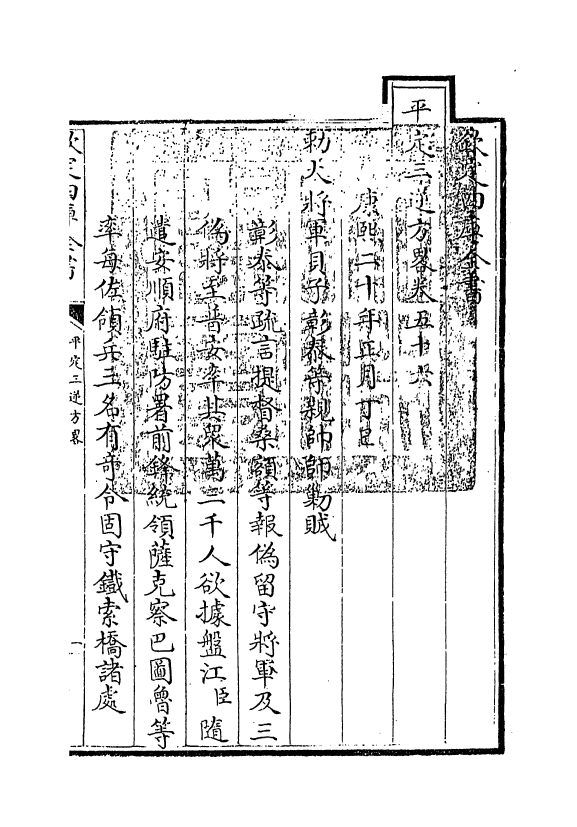 欽定四庫全書
平定三逆方畧卷五十六
康熙二十年正月丁巳
勅大將軍貝子彰泰等親帥師勦賊
彰泰等疏言提督桑額等報偽留守將軍及三
偽將至普安率其衆萬二千人欲據盤江臣隨
遣安順府駐防署前鋒統領薩克察巴圖魯等
率每佐領兵三名有奇令固守鐵索橋諸處
欽定四庫全書
平定三逆方畧
一